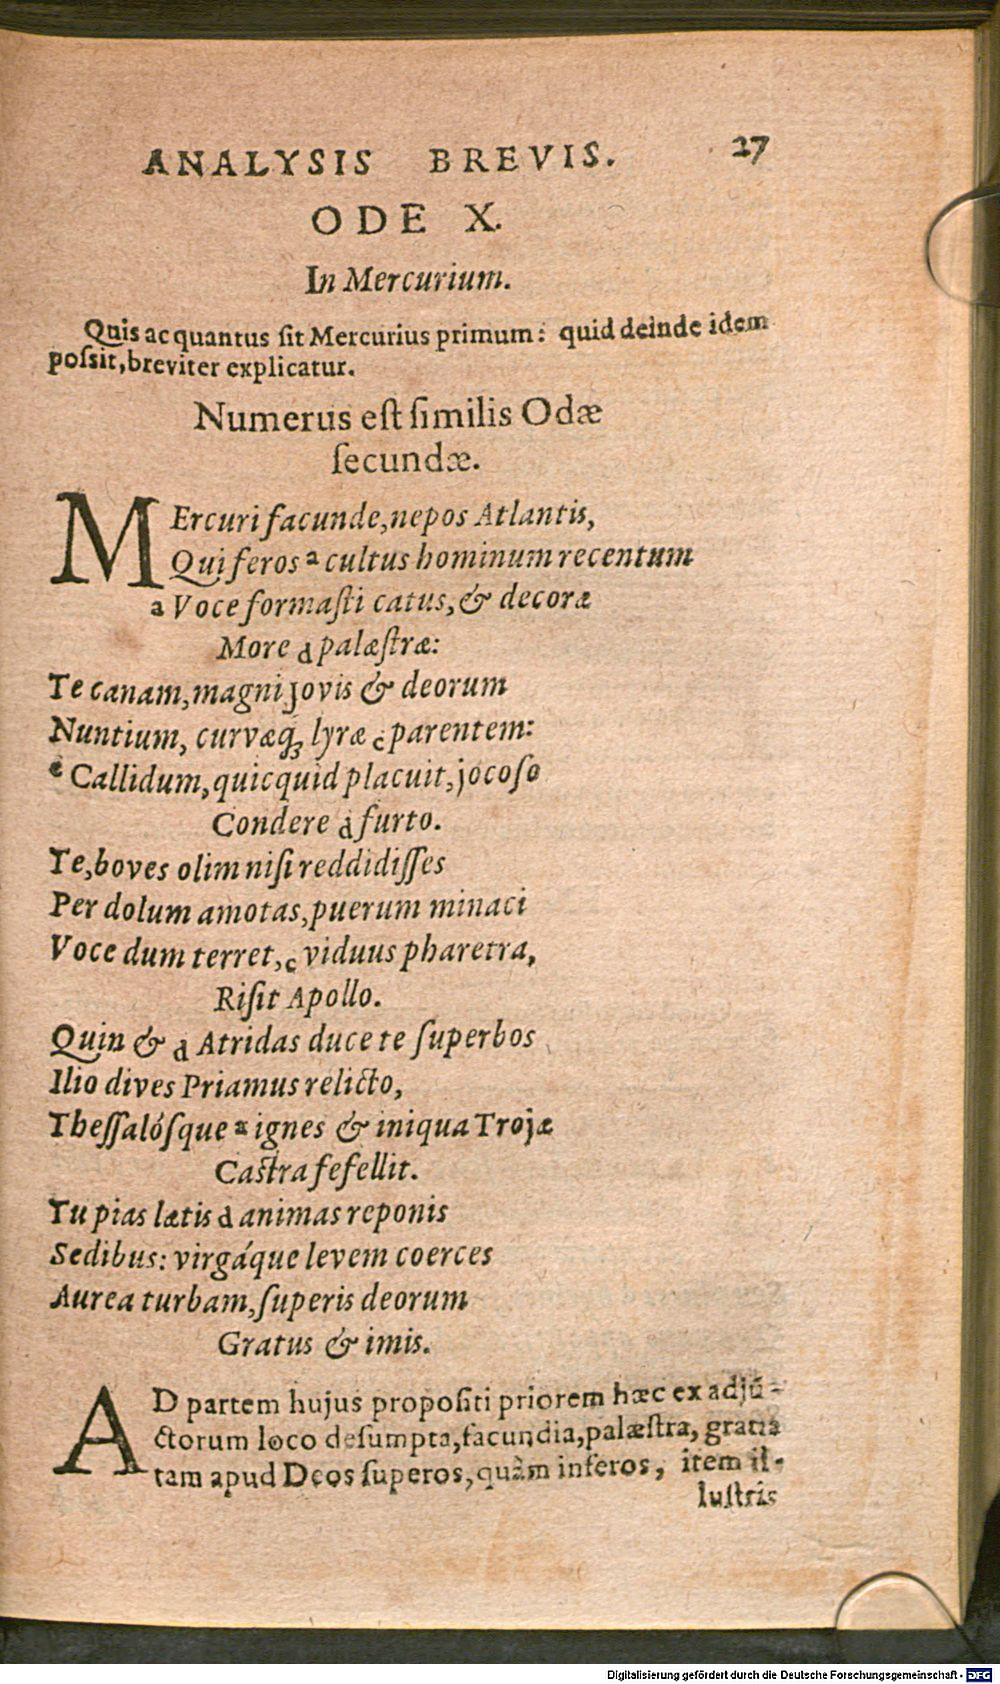 ANALYSIS BREVIS. 27
ODE X.
In Mercurium.
Quis ac quantus ſit Mercurius primum: quid deinde idem
poſsit, breviter explicatur.
Numerus eſt ſimilis Odæ
ſecundæ.
MErcuri facunde, nepos Atlantis,
Qui feros a cultus hominum recentum
a Voce formaſti catus, & decoræ
More d palæſtræ:
Te canam, magni Jovis & deorum
Nuntium, curvæq́ꝫ lyræ c parentem:
e Callidum, quicquid placuit, jocoſo
Condere d furto.
Te, boves olim niſi reddidiſſes
Per dolum amotas, puerum minaci
Voce dum terret, c viduus pharetra,
Riſit Apollo.
Quin & d Atridas duce te ſuperbos
Ilio dives Priamus relicto,
Theſſalóſque a ignes & iniqua Trojæ
Caſtra fefellit.
Tu pias lætis d animas reponis
Sedibus: virgáque levem coerces
Aurea turbam, ſuperis deorum
Gratus & imis.
AD partem hujus propoſiti priorem hæc ex adjū-
ctorum loco deſumpta, facundia, palæſtra, gratia
tam apud Deos ſuperos, quàm inferos, item il-
luſtris
Digitalisierung gefördert durch die Deutsche Forschungsgemeinschaft - DFG